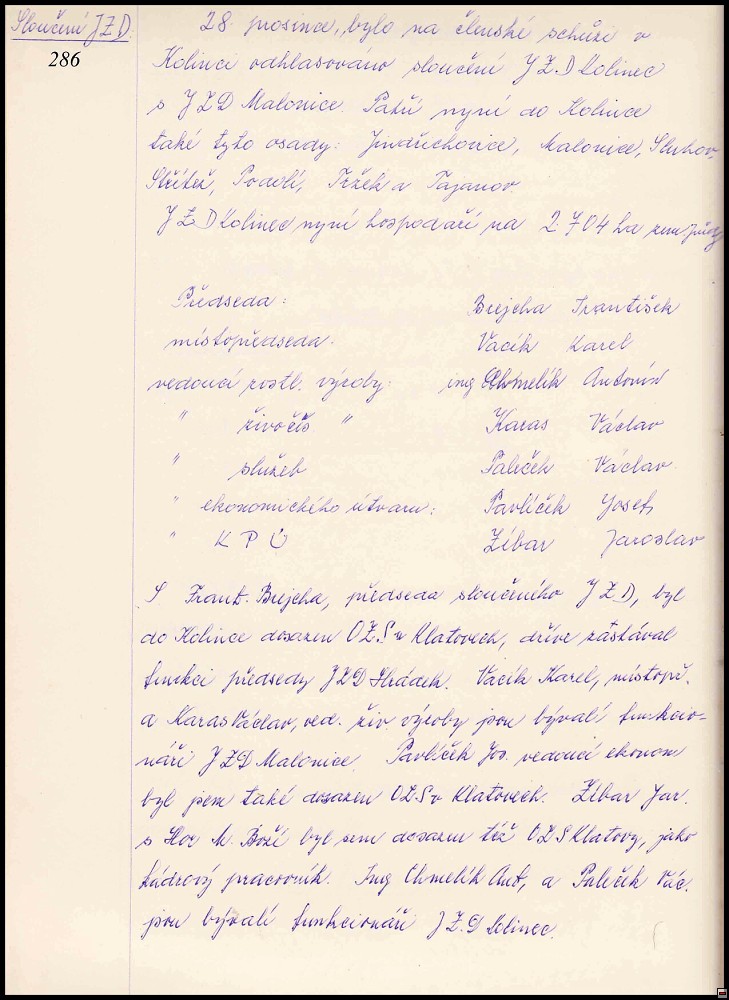 Sloučení JZD.
286
28. prosince, bylo na členské schůzi v
Kolinci odhlasováno sloučení JZD Kolinec
s JZD Malonice. Patří nyní do Kolince
také tyto osady: Jindřichovice, Malonice, Sluhov,
Střítež, Podolí, Tržek a Tajanov
JZD Kolinec nyní hospodaří na 2.704 ha zem. půdy
Předseda: Brejcha František
místopředseda: Vacík Karel
vedoucí rostl. výroby: ing Chmelík Antonín
" živočiš " Karas Václav
" služeb Paleček Václav
" ekonomického útvaru: Pavlíček Josef
" K P Ú Žíbar Jaroslav
S Frant. Brejcha, předseda sloučeného JZD, byl
do Kolince dosazen OZS v Klatovech, dříve zastával
funkci předsedy JZD Hrádek. Vacík Karel, místopř.
a Karas Václav, ved. živ. výroby jsou bývalí funkcio-
náři JZD Malonice. Pavlíček Jos. vedoucí ekonom
byl sem také dosazen OZS v Klatovech. Žíbar Jar.
s Hor M. Boží byl sem dosazen též OZS Klatovy, jako
kádrový pracovník. Ing Chmelík Ant, a Paleček Vác.
jsou bývalí funkcionáři JZD Kolinec.